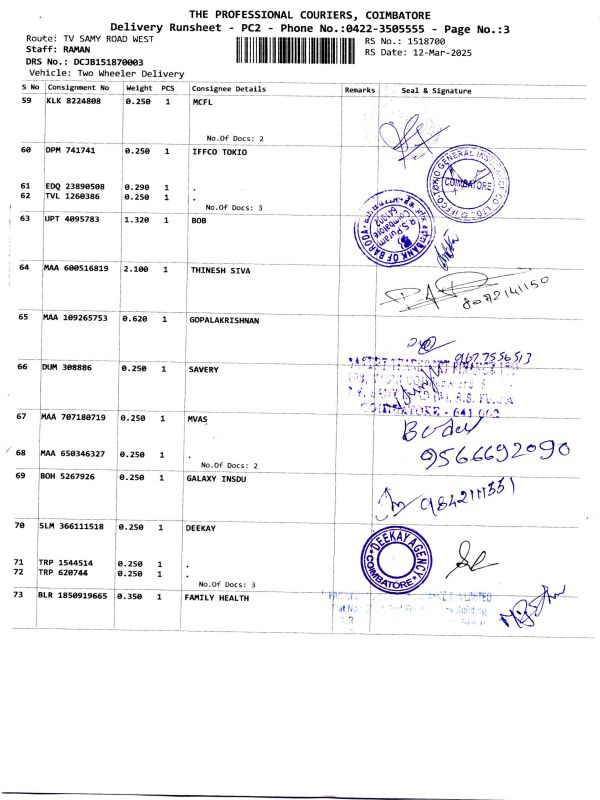 THE PROFESSIONAL COURIERS, COIMBATORE
Delivery Runsheet - PC2 - Phone No.:0422-3505555 - Page No.:3
Route: TV SAMY ROAD WEST
RS No.: 1518700
Staff: RAMAN
RS Date: 12-Mar-2025
DRS No.: DCJB151870003
Vehicle: Two Wheeler Delivery
S No Consignment No Weight PCS Consignee Details Remarks Seal & Signature
59 KLK 8224808 0.250 1 MCFL
No.Of Docs: 2
60 DPM 741741 0.250 1 IFFCO TOKIO
IFFCO-TOKIO GENERAL INSURANCE CO. LTD.
COIMBATORE
61 EDQ 23890508 0.290 1 .
62 TVL 1260386 0.250 1 .
No.Of Docs: 3
63 UPT 4095783 1.320 1 BOB
BANK OF BARODA
R.S. Puram
Coimbatore
641002
64 MAA 600516819 2.100 1 THINESH SIVA
8072141150
65 MAA 109265753 0.620 1 GOPALAKRISHNAN
9677556513
66 DUM 308886 0.250 1 SAVERY
COIMBATORE - 641 002
67 MAA 707180719 0.250 1 MVAS
68 MAA 650346327 0.250 1 .
9566692090
No.Of Docs: 2
69 BOH 5267926 0.250 1 GALAXY INSDU
9842111331
70 SLM 366111518 0.250 1 DEEKAY
DEEKAY AGENCY
COIMBATORE
71 TRP 1544514 0.250 1 .
72 TRP 620744 0.250 1 .
No.Of Docs: 3
73 BLR 1850919665 0.350 1 FAMILY HEALTH